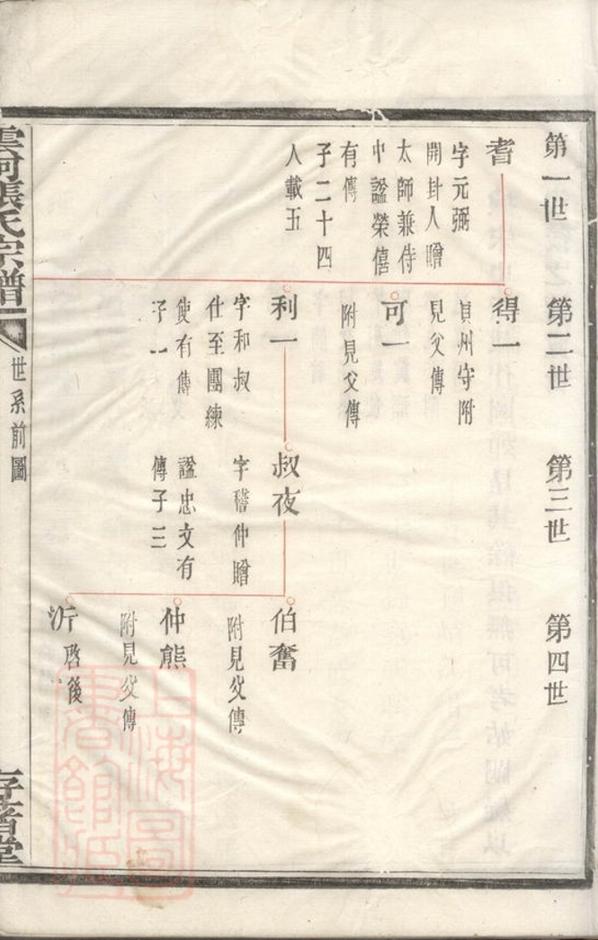 第一世
第二世
第三世
第四世
耆
字元弼
開封人贈
太師兼侍
中諡榮僖
有傳
子二十四
人載五
得一
貝州守附
見父傳
可一
附見父傳
利一
字和叔
仕至團練
使有傳
子一
叔夜
字嵇仲贈
諡忠文有
傳子三
伯奮
附見父傳
仲熊
附見父傳
沂
啓後
張氏宗譜
世系前圖
存著堂
上海圖書館藏